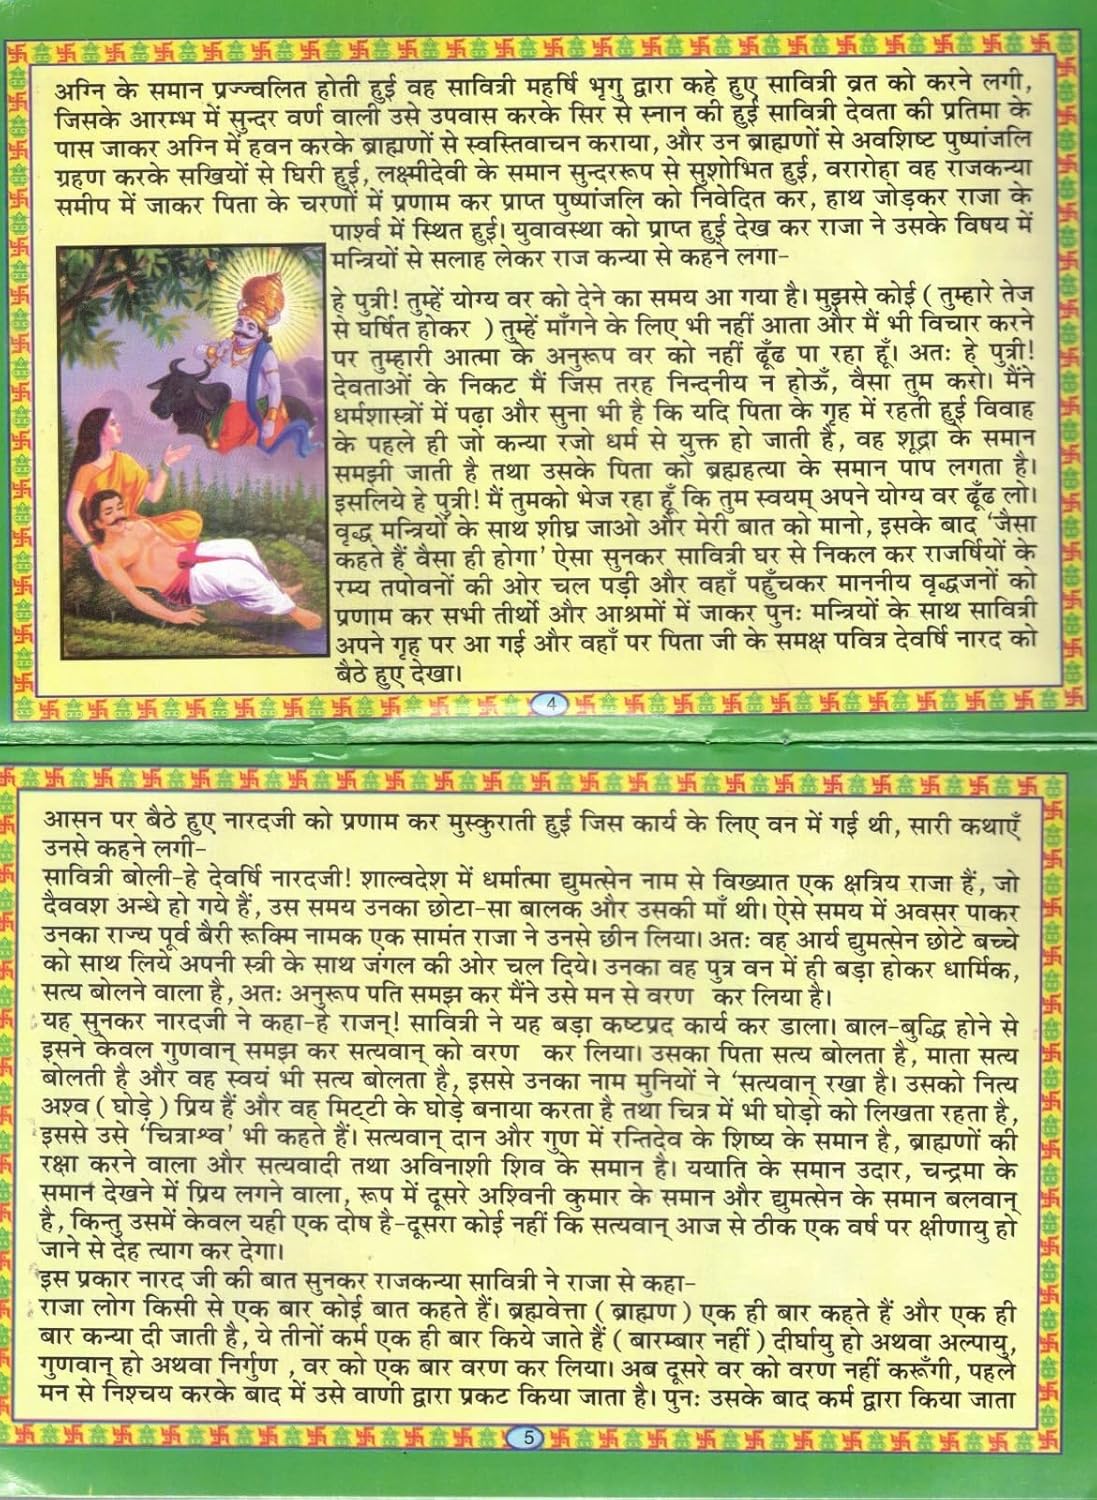 अग्नि के समान प्रज्ज्वलित होती हुई वह सावित्री महर्षि भृगु द्वारा कहे हुए सावित्री व्रत को करने लगी,
जिसके आरम्भ में सुन्दर वर्ण वाली उसे उपवास करके सिर से स्नान की हुई सावित्री देवता की प्रतिमा के
पास जाकर अग्नि में हवन करके ब्राह्मणों से स्वस्तिवाचन कराया, और उन ब्राह्मणों से अवशिष्ट पुष्पांजलि
ग्रहण करके सखियों से घिरी हुई, लक्ष्मीदेवी के समान सुन्दररूप से सुशोभित हुई, वरारोहा वह राजकन्या
समीप में जाकर पिता के चरणों में प्रणाम कर प्राप्त पुष्पांजलि को निवेदित कर, हाथ जोड़कर राजा के
पार्श्व में स्थित हुई। युवावस्था को प्राप्त हुई देख कर राजा ने उसके विषय में
मन्त्रियों से सलाह लेकर राज कन्या से कहने लगा-
हे पुत्री! तुम्हें योग्य वर को देने का समय आ गया है। मुझसे कोई ( तुम्हारे तेज
से घर्षित होकर ) तुम्हें माँगने के लिए भी नहीं आता और मैं भी विचार करने
पर तुम्हारी आत्मा के अनुरूप वर को नहीं ढूँढ पा रहा हूँ। अतः हे पुत्री!
देवताओं के निकट मैं जिस तरह निन्दनीय न होऊँ, वैसा तुम करो। मैंने
धर्मशास्त्रों में पढ़ा और सुना भी है कि यदि पिता के गृह में रहती हुई विवाह
के पहले ही जो कन्या रजो धर्म से युक्त हो जाती है, वह शूद्रा के समान
समझी जाती है तथा उसके पिता को ब्रह्महत्या के समान पाप लगता है।
इसलिये हे पुत्री! मैं तुमको भेज रहा हूँ कि तुम स्वयम् अपने योग्य वर ढूँढ लो।
वृद्ध मन्त्रियों के साथ शीघ्र जाओ और मेरी बात को मानो, इसके बाद 'जैसा
कहते हैं वैसा ही होगा' ऐसा सुनकर सावित्री घर से निकल कर राजर्षियों के
रम्य तपोवनों की ओर चल पड़ी और वहाँ पहुँचकर माननीय वृद्धजनों को
प्रणाम कर सभी तीर्थो और आश्रमों में जाकर पुनः मन्त्रियों के साथ सावित्री
अपने गृह पर आ गई और वहाँ पर पिता जी के समक्ष पवित्र देवर्षि नारद को
बैठे हुए देखा।
4
आसन पर बैठे हुए नारदजी को प्रणाम कर मुस्कुराती हुई जिस कार्य के लिए वन में गई थी, सारी कथाएँ
उनसे कहने लगी-
सावित्री बोली-हे देवर्षि नारदजी! शाल्वदेश में धर्मात्मा द्युमत्सेन नाम से विख्यात एक क्षत्रिय राजा हैं, जो
दैववश अन्धे हो गये हैं, उस समय उनका छोटा-सा बालक और उसकी माँ थी। ऐसे समय में अवसर पाकर
उनका राज्य पूर्व बैरी रूक्मि नामक एक सामंत राजा ने उनसे छीन लिया। अतः वह आर्य द्युमत्सेन छोटे बच्चे
को साथ लिये अपनी स्त्री के साथ जंगल की ओर चल दिये। उनका वह पुत्र वन में ही बड़ा होकर धार्मिक,
सत्य बोलने वाला है, अतः अनुरूप पति समझ कर मैंने उसे मन से वरण कर लिया है।
यह सुनकर नारदजी ने कहा-हे राजन्! सावित्री ने यह बड़ा कष्टप्रद कार्य कर डाला। बाल-बुद्धि होने से
इसने केवल गुणवान् समझ कर सत्यवान् को वरण कर लिया। उसका पिता सत्य बोलता है, माता सत्य
बोलती है और वह स्वयं भी सत्य बोलता है, इससे उनका नाम मुनियों ने 'सत्यवान् रखा है। उसको नित्य
अश्व ( घोड़े ) प्रिय हैं और वह मिट्टी के घोड़े बनाया करता है तथा चित्र में भी घोड़ों को लिखता रहता है,
इससे उसे 'चित्राश्व' भी कहते हैं। सत्यवान् दान और गुण में रन्तिदेव के शिष्य के समान है, ब्राह्मणों की
रक्षा करने वाला और सत्यवादी तथा अविनाशी शिव के समान है। ययाति के समान उदार, चन्द्रमा के
समान देखने में प्रिय लगने वाला, रूप में दूसरे अश्विनी कुमार के समान और द्युमत्सेन के समान बलवान्
है, किन्तु उसमें केवल यही एक दोष है-दूसरा कोई नहीं कि सत्यवान् आज से ठीक एक वर्ष पर क्षीणायु हो
जाने से देह त्याग कर देगा।
इस प्रकार नारद जी की बात सुनकर राजकन्या सावित्री ने राजा से कहा-
राजा लोग किसी से एक बार कोई बात कहते हैं। ब्रह्मवेत्ता ( ब्राह्मण ) एक ही बार कहते हैं और एक ही
बार कन्या दी जाती है, ये तीनों कर्म एक ही बार किये जाते हैं ( बारम्बार नहीं ) दीर्घायु हो अथवा अल्पायु,
गुणवान् हो अथवा निर्गुण , वर को एक बार वरण कर लिया। अब दूसरे वर को वरण नहीं करूँगी, पहले
मन से निश्चय करके बाद में उसे वाणी द्वारा प्रकट किया जाता है। पुनः उसके बाद कर्म द्वारा किया जाता
5